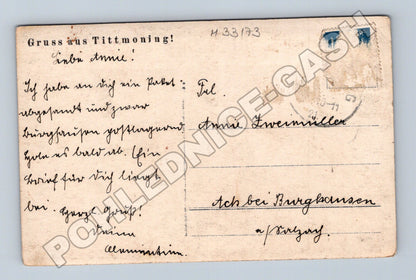 Gruss aus Tittmoning!
H-33/73
Liebe Annie!
Ich habe an dich ein Paket
abgesandt und zwar
Burghausen postlagernd
hole es bald ab. Ein
Brief für dich liegt
bei. Herzl. Gruß!
Deine
Clementine.
Frl.
Annie Zweimüller
Ach bei Burghausen
a/Salzach
POHLEDNICE-GASH